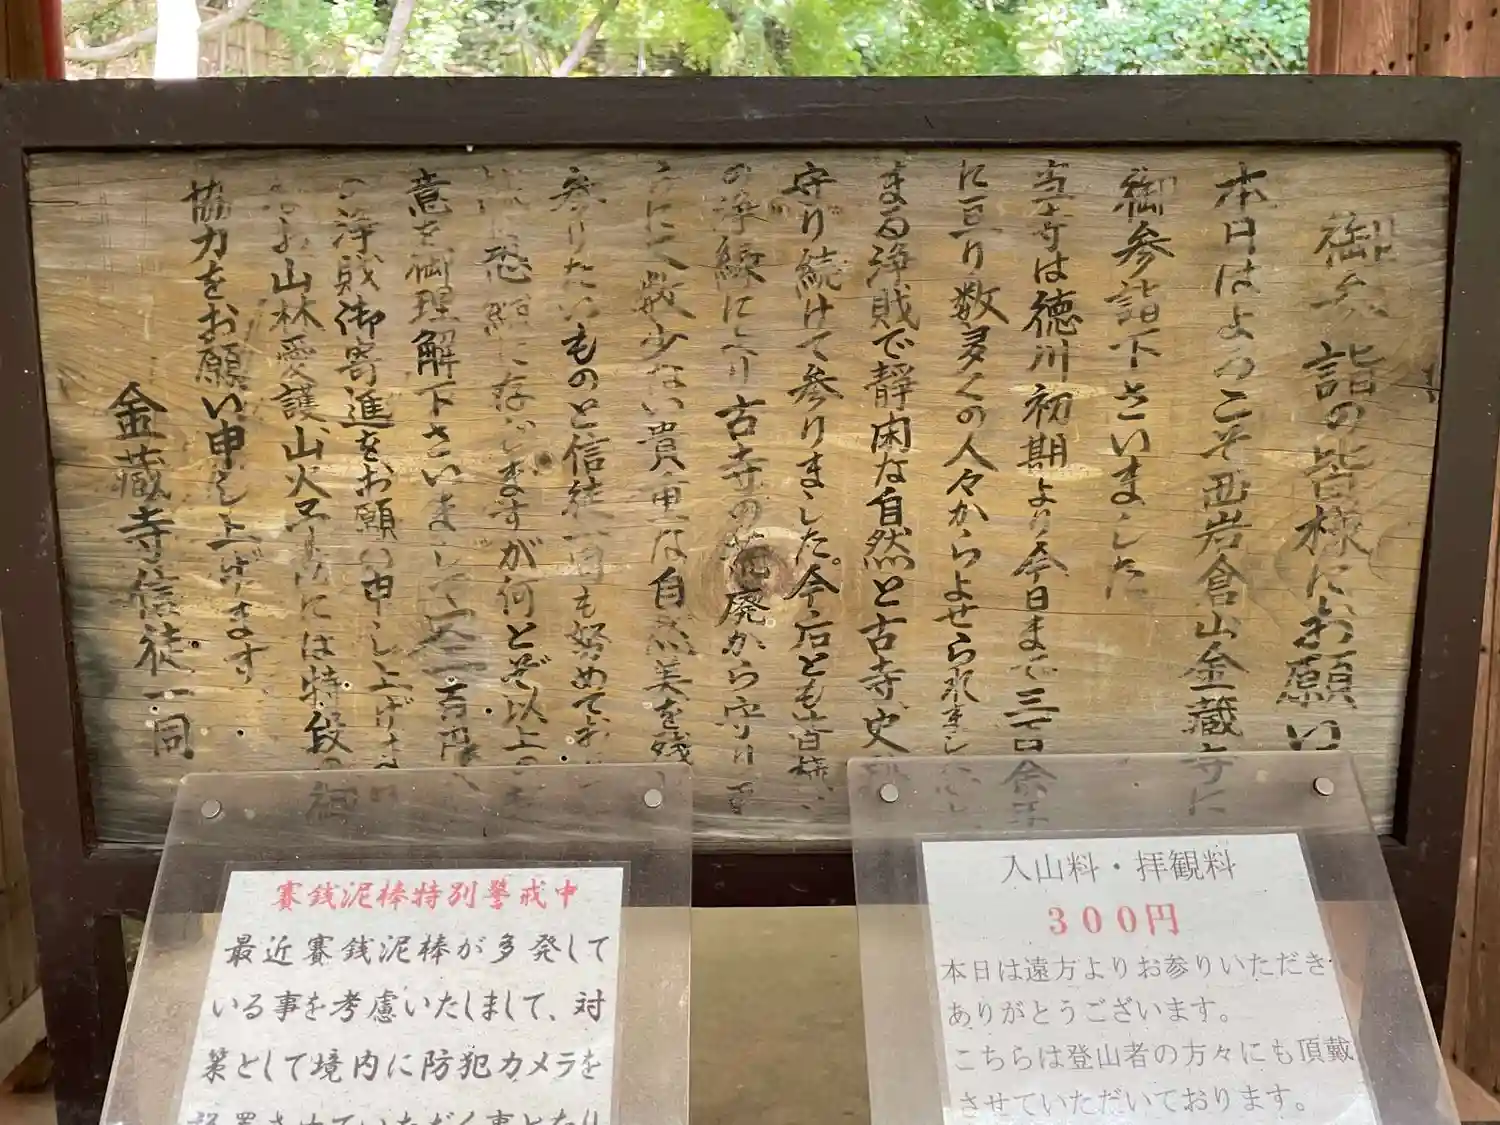 御参詣の皆様にお願い
本日はようこそ西岩倉山金蔵寺に
御参詣下さいました
当寺は徳川初期より今日まで三百余年
に亘り数多くの人々からよせられまし
まる浄財で静閑な自然と古寺史
守り続けて参りました。今后とも皆様
の浄縁により古寺の荒廃から守りま
数少ない貴重な自然美を残
参りたいものと信徒一同も努めてお
恐縮に存じますが何とぞ以上の
意を御理解下さいまして 百円
の浄財御寄進をお願い申し上げ
なお山林愛護、山火には特段の御
協力をお願い申し上げます
金蔵寺信徒一同
賽銭泥棒特別警戒中
最近賽銭泥棒が多発して
いる事を考慮いたしまして、対
策として境内に防犯カメラを
設置させていただく事となり
入山料・拝観料
300円
本日は遠方よりお参りいただき
ありがとうございます。
こちらは登山者の方々にも頂戴
させていただいております。